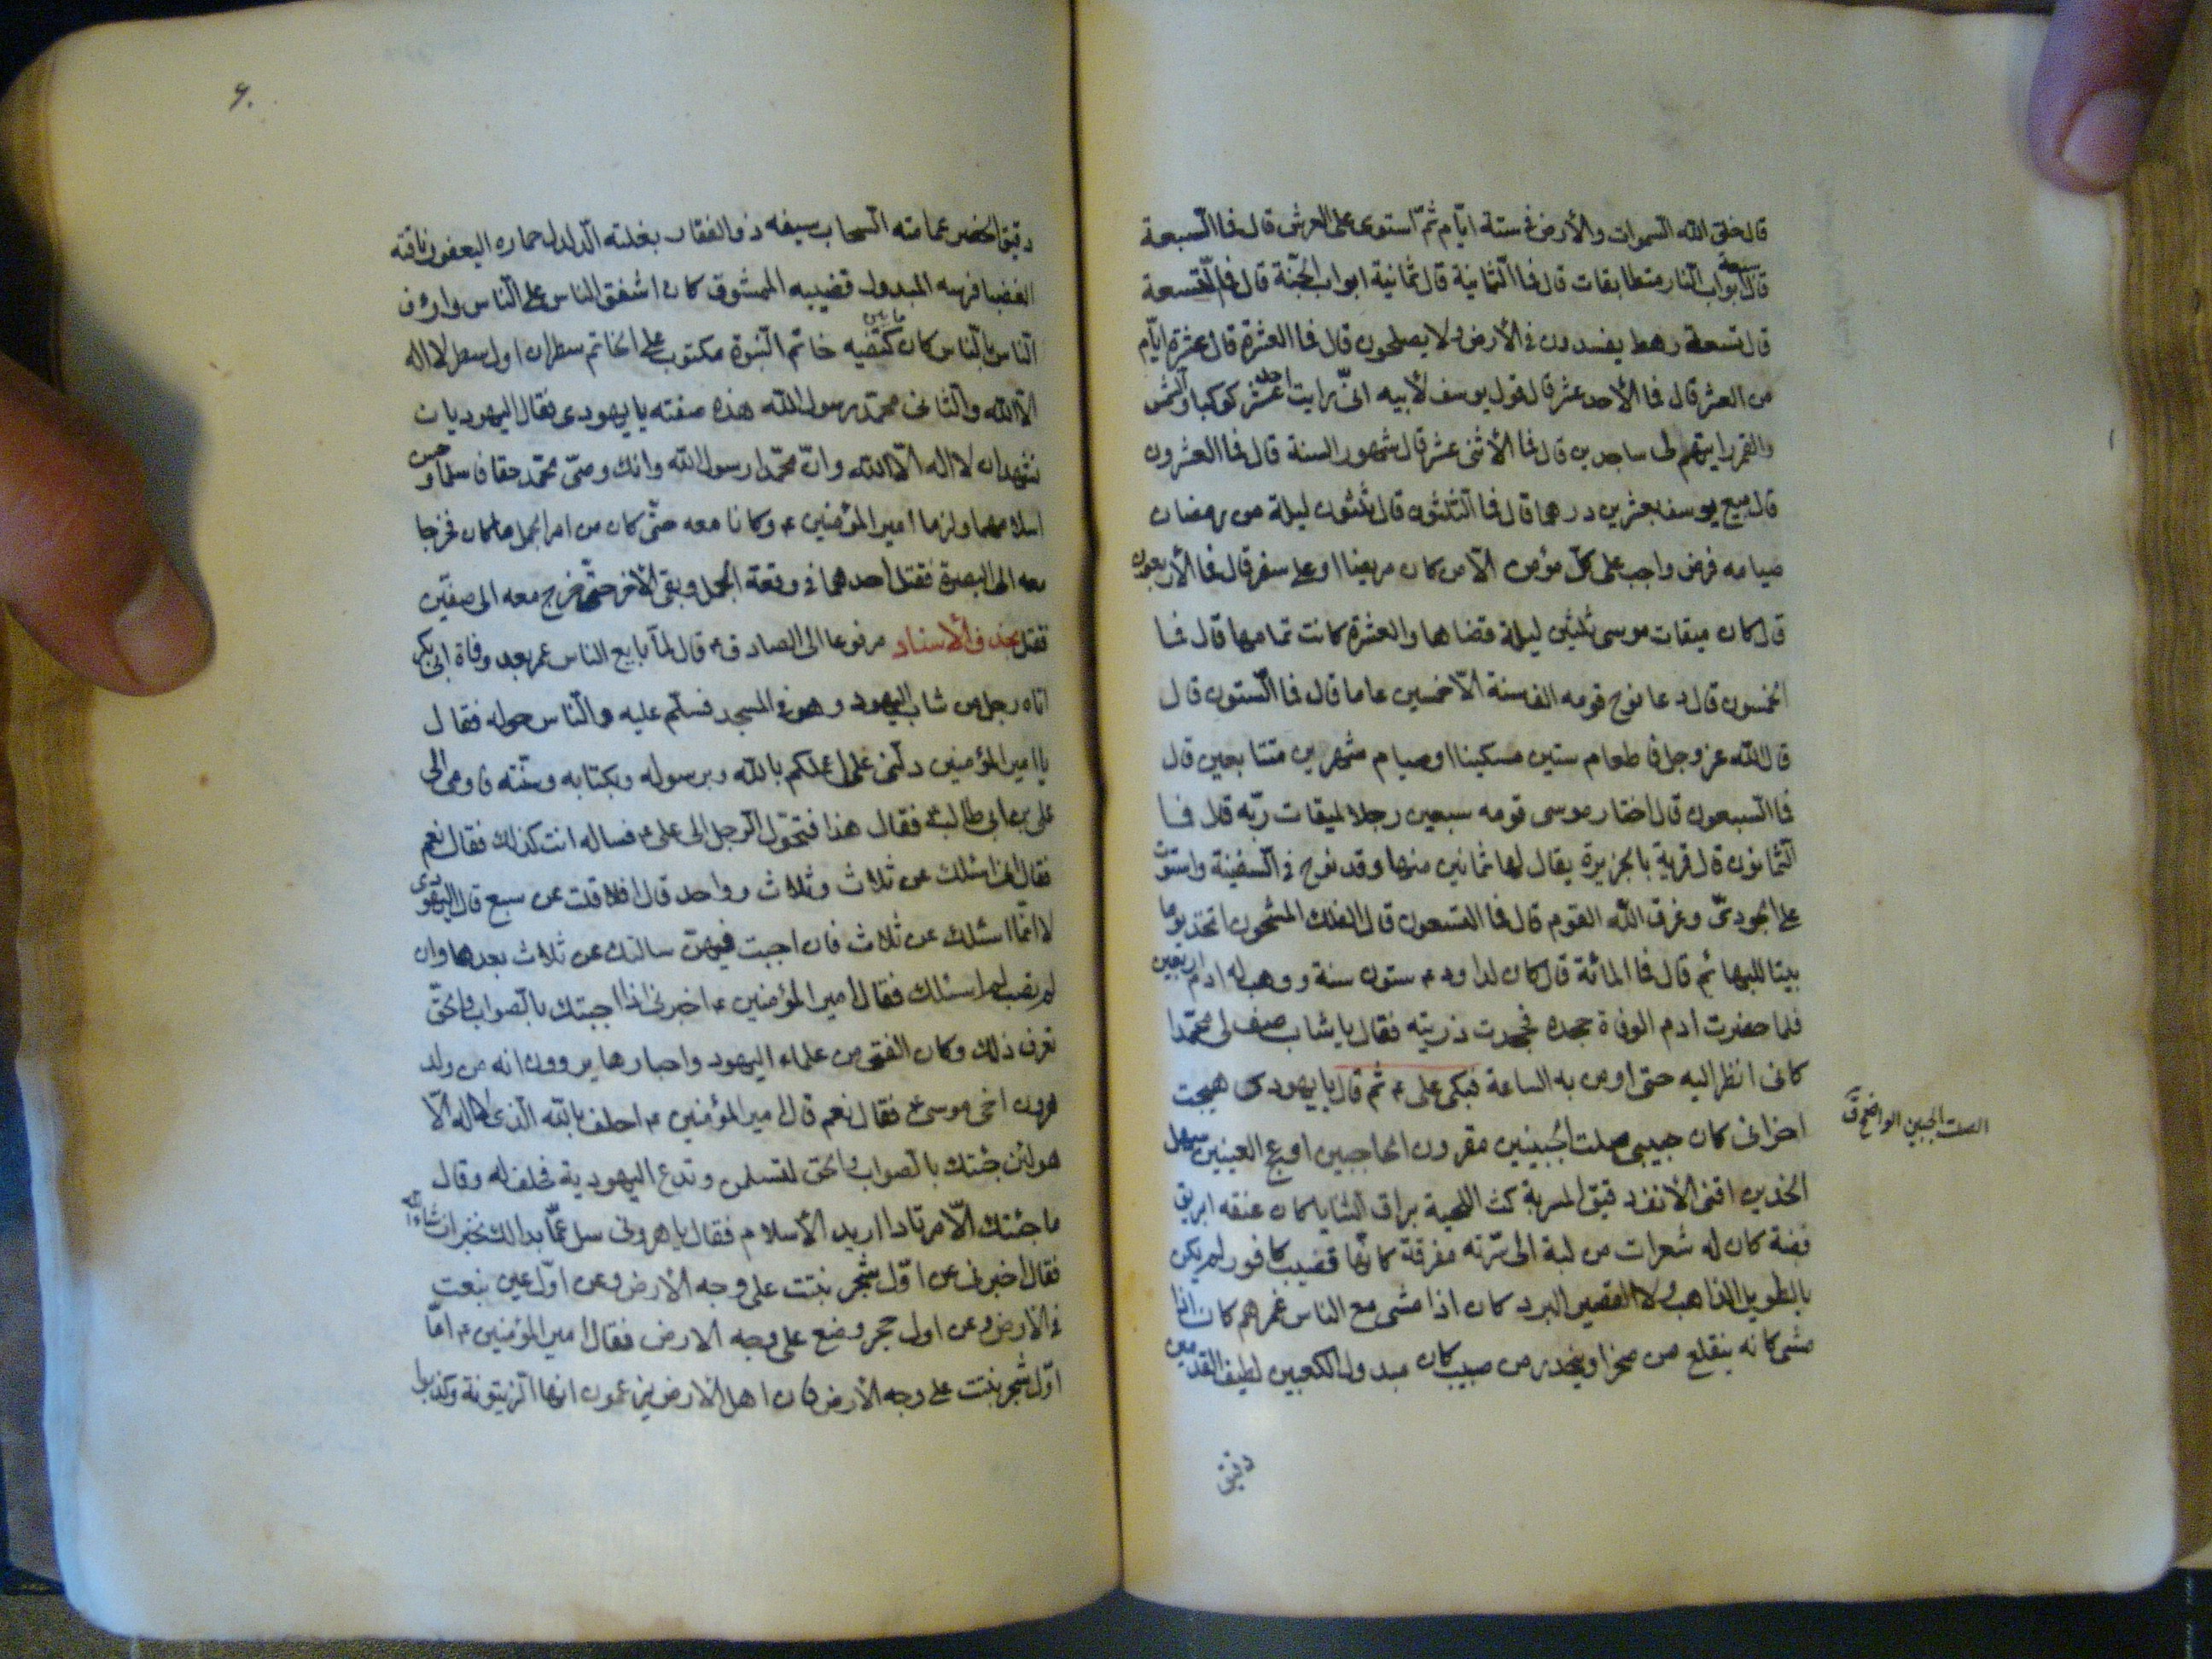 قال خلق الله السموات والأرض في ستة ايّام ثمّ استوى على العرش قال فما السبعة
قال سبعة ابواب النار متطابقات قال فما الثمانية قال ثمانية ابواب الجنّة قال فما التسعة
قال تسعة رهط يفسدون في الأرض ولا يصلحون قال فما العشرة قال عشرة ايّام
من العشر قال فما الأحد عشر قال قول يوسف لأبيه انّى رايت احد عشر كوكبا والشمس
والقمر رايتهم لى ساجدين قال فما الأثنى عشر قال شهور السنة قال فما العشرون
قال بيع يوسف بعشرين درهما قال فما الثلثون قال ثلثون ليلة من رمضان
صيامه فرض واجب على كلّ مؤمن الّا من كان مريضا او على سفر قال فما الأربعون
قال كان ميقات موسى ثلثين ليلة قضاها والعشرة كانت تمامها قال فما
الخمسون قال دعا نوح قومه الف سنة الّا خمسين عاما قال فما الستون قال
قال الله عز وجل فاطعام ستين مسكينا او صيام شهرين متتابعين قال
فما السبعون قال اختار موسى قومه سبعين رجلا لميقات ربّه قال فما
الثمانون قال قرية بالجزيرة يقال لها ثمانين منها وقد نوح في السفينة واستوت
على الجودىّ وغرق الله القوم قال فما التسعون قال الفلك المشحون اتخذ يوما
بيتا للبهائم قال فما المائة قال كان لداود ء ستون سنة ووهب له ادم اربعين
فلما حضرت ادم الوفاة جحده فجحدت ذريته فقال يا شاب صف لى محمّدا
كانى انظر اليه حتى اومن به الساعة فبكى على ء ثم قال يا يهودى هيجت
احزانى كان حبيبى صلت الجبينين مقرون الحاجبين ادعج العينين سهل
الخدين اقنى الأنف دقيق المسربة كث اللحية براق الثنايا كان عنقه ابريق
فضة كان له شعرات من لبة الى سرّته مفرقة كانّها قضيب كافور لم يكن
بالطويل الذاهب ولا القصير البرد كان اذا مشى مع الناس غمرهم كان اذا
مشى كانه ينقلع من صخر او ينحدر من صبب كان مبدول الكعبين لطيف القدمين
دقيق
الصلت الجبين الواضح ق
۶۰
دقيق الخصر عمامته السحاب سيفه ذو الفقار بغلته الدلدل حماره اليعفور ناقته
الغضبا فرسه المبدول قضيبه الممشوق كان اشفق الناس على الناس وارؤف
الناس بالناس كان ما بين كتفيه خاتم النبوة مكتوب على الخاتم سطران اول سطر لا اله
الّا الله والثانى محمّد رسول الله هذه صفته يا يهودى فقال اليهوديان
نشهد ان لا اله الّا الله وانّ محمّدا رسول الله وانك وصىّ محمّد حقا فاسلما وحسن
اسلامهما ولزما امير المؤمنين ء وكانا معه حتّى كان من امر الجمل ما كان فخرجا
معه الى البصرة فقتل احدهما في وقعة الجمل وبقى الأخر حتّى خرج معه الى صفّين
فقتل بحذف الأسناد مرفوعا الى الصادق ء قال لمّا بايع الناس عمر بعد وفاة ابى بكر
اتاه رجل من شاب اليهود وهو في المسجد فسلّم عليه والناس حوله فقال
يا امير المؤمنين دلّنى على اعلمكم بالله وبرسوله وبكتابه وسنّته فاومى الى
على بن ابى طالب ء فقال هذا فتحوّل الرجل الى على ء فساله انت كذلك فقال نعم
فقال انى اسئلك عن ثلاث وثلاث وواحد قال افلا قلت عن سبع قال اليهودى
لا انّما اسئلك عن ثلاث فان اجبت فيهنّ سالتك عن ثلاث بعدها وان
لم تصب لم اسئلك فقال امير المؤمنين ء اخبرنى اذا اجبتك بالصواب والحقّ
تعرف ذلك وكان الفتى من علماء اليهود واحبارها يروون انه من ولد
هرون اخى موسى ء فقال نعم قال امير المؤمنين ء احلف بالله الذى لا اله الّا
هو لئن جئتك بالصواب والحق لتسلمن وتدع اليهودية فحلف له وقال
ما جئتك الّا مرتادا اريد الأسلام فقال يا هرونى سل عمّا بدا لك تخبر ان شاء الله
فقال اخبرنى عن اوّل شجر نبتت على وجه الأرض وعن اوّل عين نبعت
في الارض وعن اول حجر وضع على وجه الارض فقال امير المؤمنين ء امّا
اوّل شجر نبتت على وجه الأرض فان اهل الارض يزعمون انها الزيتونة وكذبوا